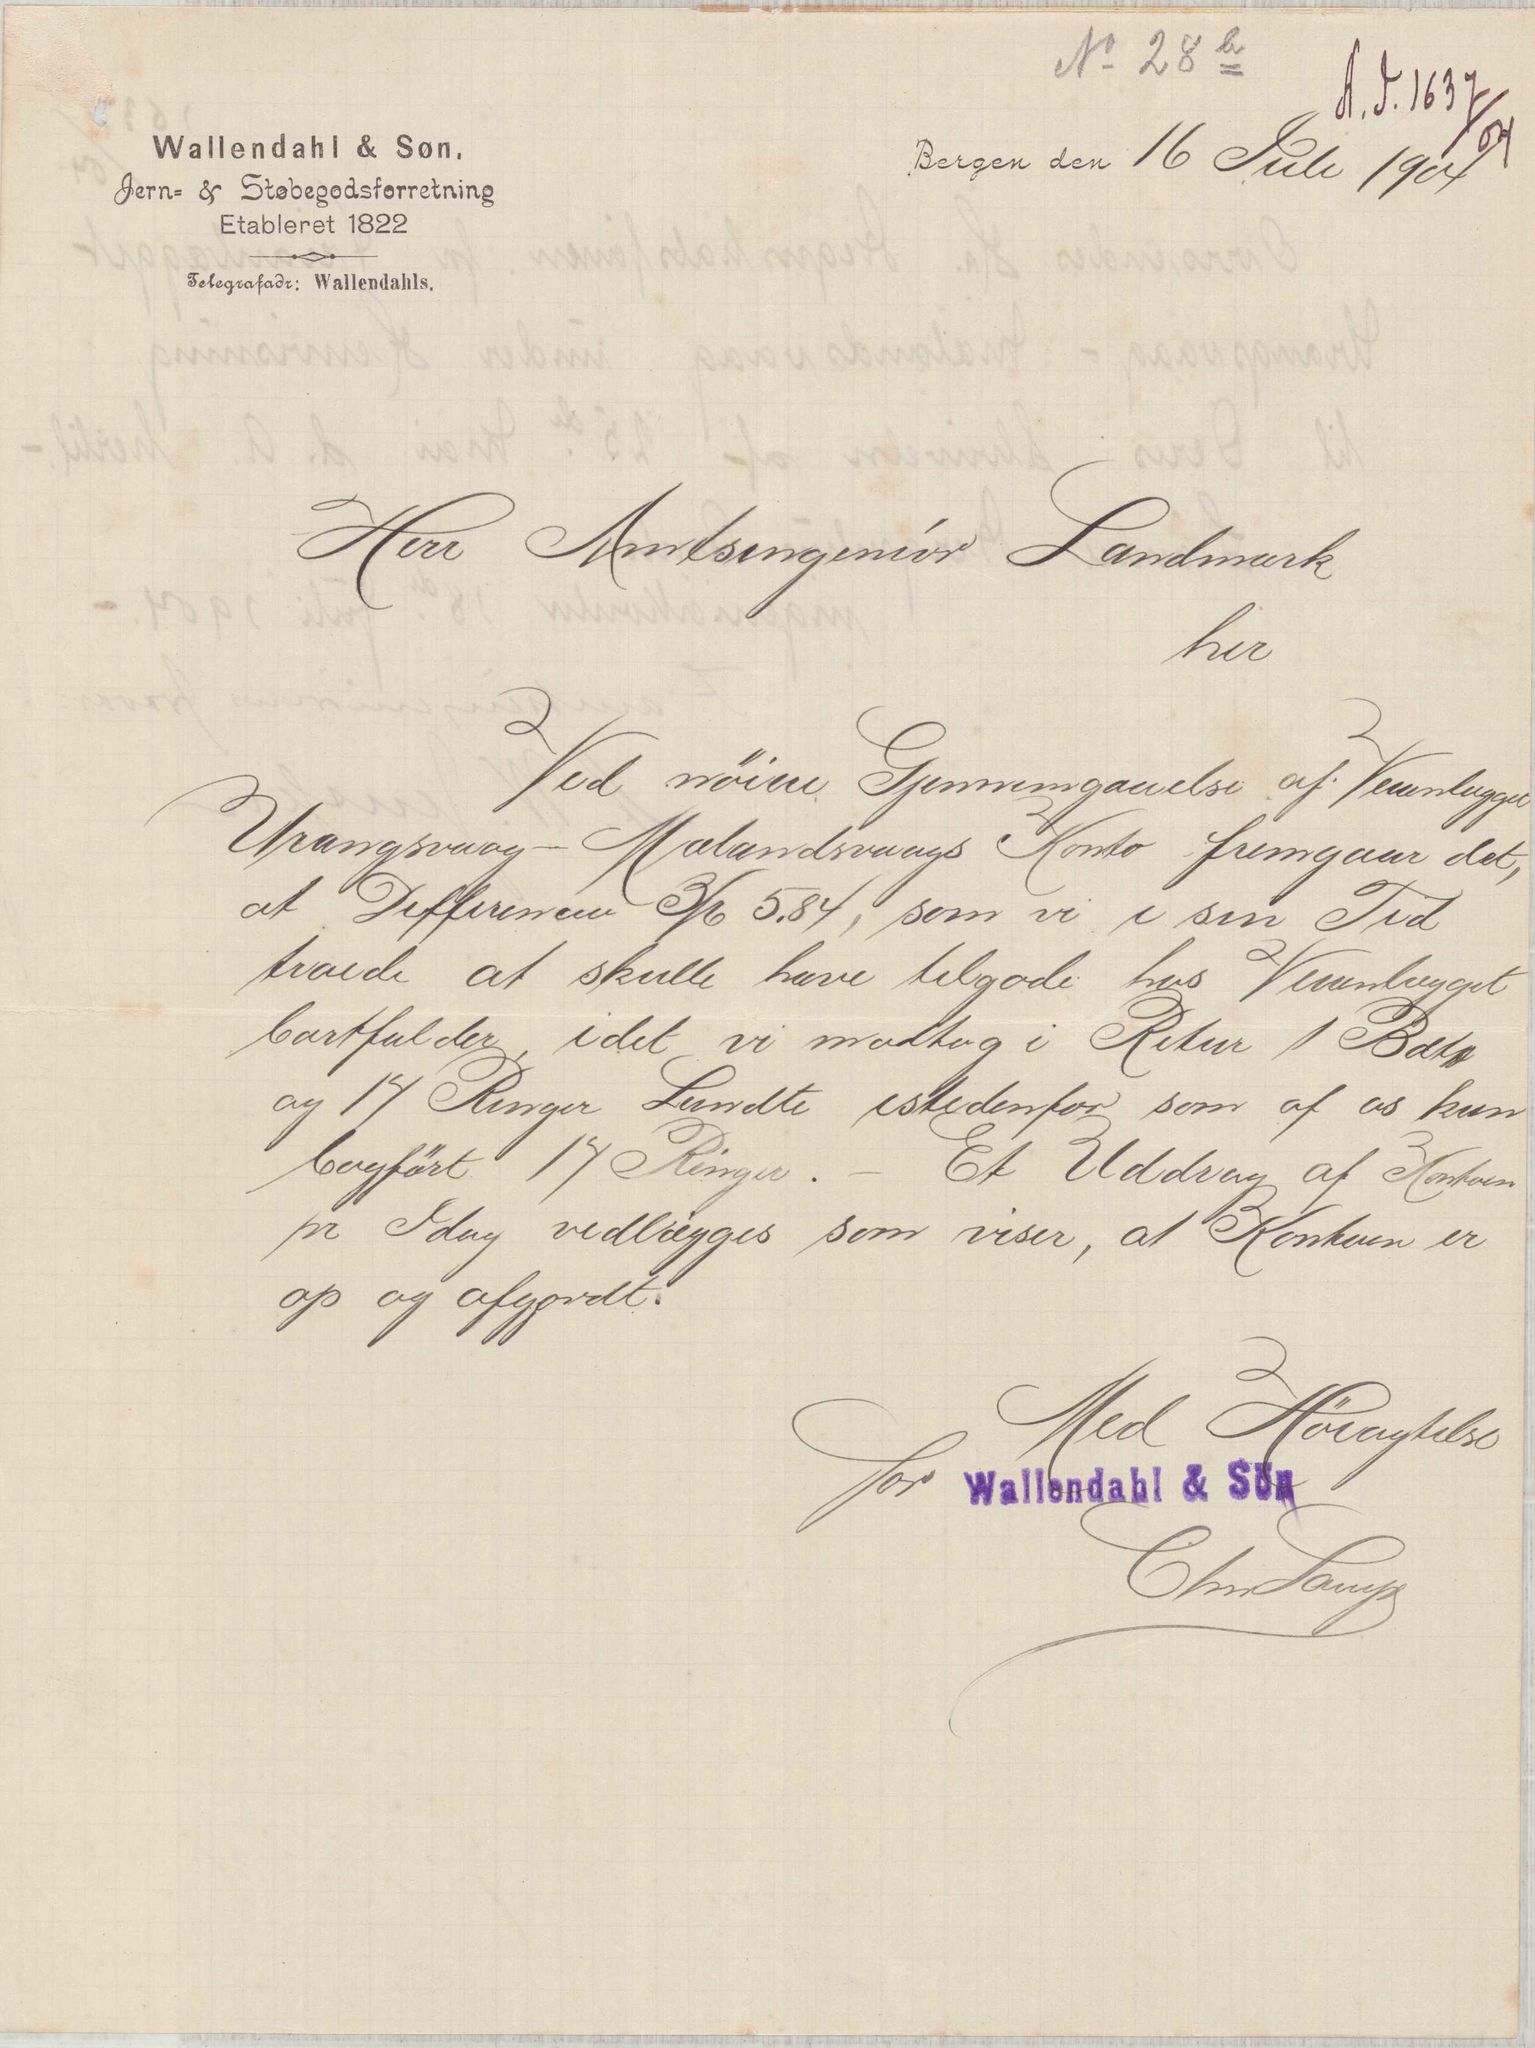 No 28 b
A.J. 1637/04
Wallendahl & Søn.
Jern= & Støbegodsforretning
Etableret 1822
Telegrafadr: Wallendahls.
Bergen den 16 Juli 1904
Herr Amtsingeniör Landmark
her
Ved nöiere Gjennemgaaelse af Veianlægget
Vrangsvaag – Mælandsvaags Konto fremgaar det,
at Differencen 5.84, som vi i sin Tid
troede at skulle have tilgode hos Veianlægget
bortfalder, idet vi modtog i Retur 1 Bdt
og 17 Ringer Lundte istedenfor som af os kun
bogfört 17 Ringer. – Et Uddrag af Kontoen
pr Idag vedlægges som viser, at Kontoen er
op og afgjordt.
Med Höiagtelse
for Wallendahl & Sön
Chr